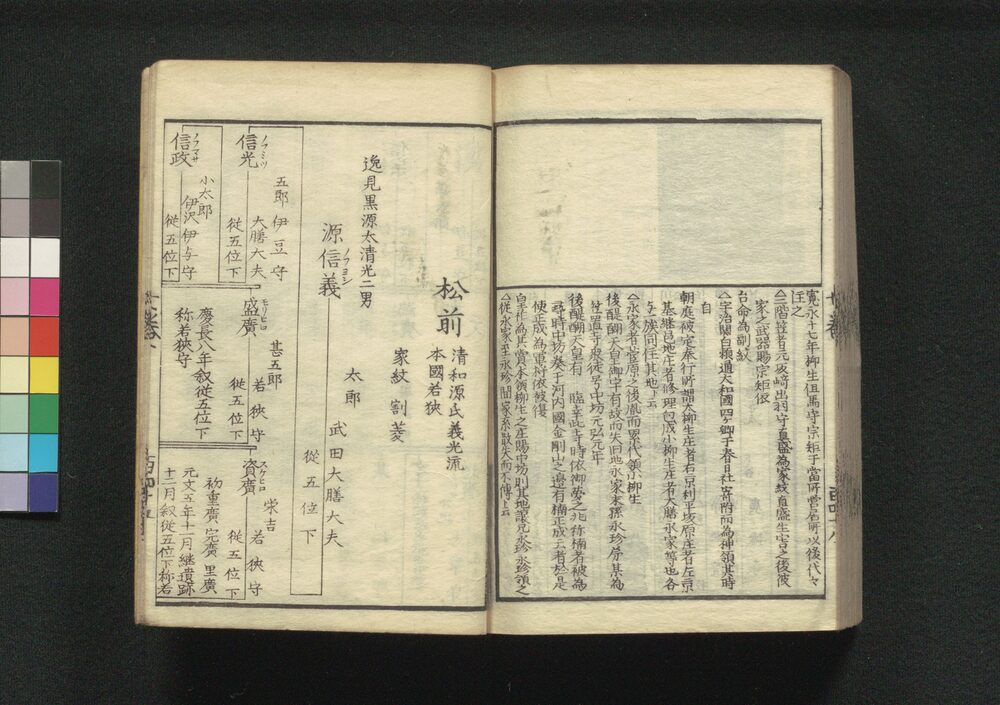 寛永十七年柳生但馬守宗矩于當所營居所以後代々
住之
△二階笠者元坂崎出羽守直盛為家紋直盛生害之後彼
家之武器賜宗矩依
台命為副紋
△宇治関白頼道大和國四ヶ郷于春日社寄附而為神領其時
自
朝庭被定奉行所謂大柳生庄者右京利平坂原庄者左京
基継邑地庄者修理包成小柳生庄者大膳永家等也各
一族同住其地ト云
△永家者菅原之後胤而累代領小柳生
後醍醐天皇御宇有故而失旧地永家末孫永珍
笠置寺衆徒号中坊元弘元年
後醍醐天皇有 臨幸此寺時依御夢之兆称楠者被為
尋時中坊奏于河内國金剛山之邊有楠正成云者於是
使正成為軍将依敗復
皇祚為其賞本領柳生之庄賜中坊則其地譲兄永珍永珍領之
△従永家至永珍間家系散失而不傳ト云
松前
清和源氏義光流
本國若狭
家紋 割菱
逸見黒源太清光二男
源信義
ノブヨシ
太郎
武田大膳大夫
従五位下
信光
ノフミツ
五郎 伊豆守
大膳大夫
従五位下
信政
ノフマサ
小太郎
伊沢 伊与守
従五位下
盛廣
モリヒロ
甚五郎
若狭守
従五位下
慶長八年叙従五位下
称若狭守
資廣
スケヒロ
栄吉
若狭守
従五位下
初重廣 完廣 里廣
元文五年十一月継遺跡
十二月叙従五位下称若